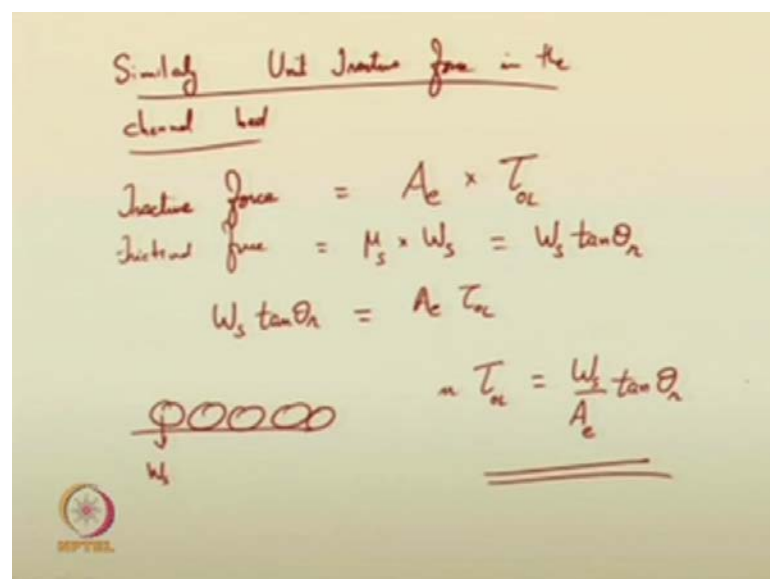 Similarly Unit Tractive force in the
channel bed
Tractive force = Ae × τoL
Frictional force = μs × Ws = Ws tanθr
Ws tanθr = Ae τoL
τoL = Ws/Ae tanθr
Ws
NPTEL